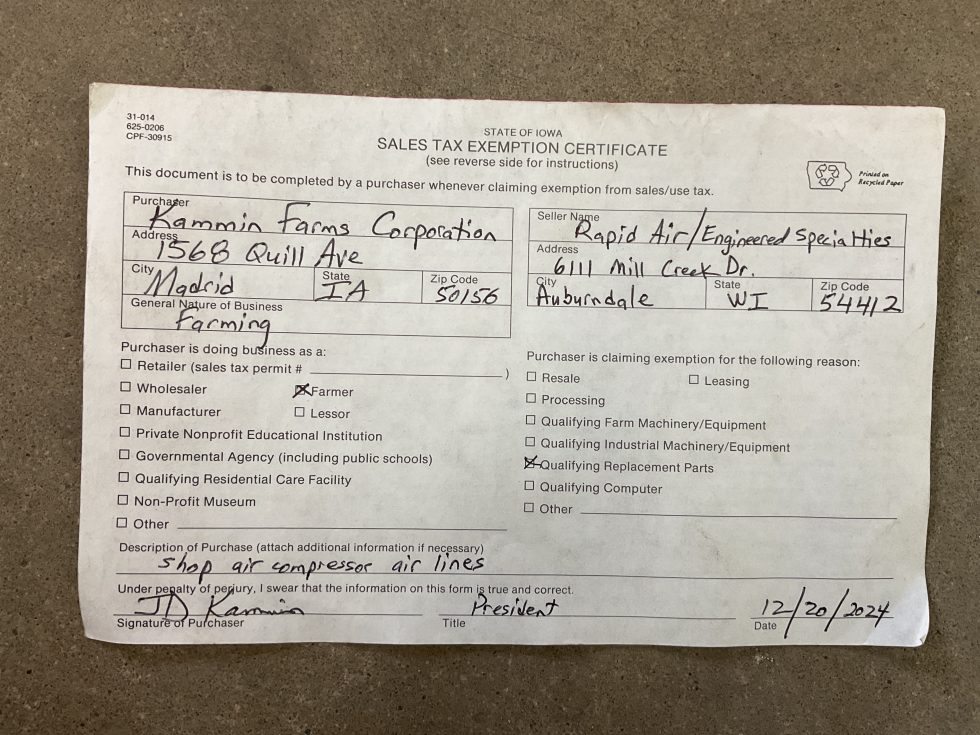 31-014
625-0206
CPF-30915
STATE OF IOWA
SALES TAX EXEMPTION CERTIFICATE
(see reverse side for instructions)
This document is to be completed by a purchaser whenever claiming exemption from sales/use tax.
Printed on
Recycled Paper
Purchaser
Kammin Farms Corporation
Address
1568 Quill Ave
City
Madrid
State
IA
Zip Code
50156
General Nature of Business
Farming
Seller Name
Rapid Air/Engineered Specialties
Address
6111 Mill Creek Dr.
City
Auburndale
State
WI
Zip Code
54412
Purchaser is doing business as a:
☐ Retailer (sales tax permit # )
☐ Wholesaler ☒ Farmer
☐ Manufacturer ☐ Lessor
☐ Private Nonprofit Educational Institution
☐ Governmental Agency (including public schools)
☐ Qualifying Residential Care Facility
☐ Non-Profit Museum
☐ Other
Purchaser is claiming exemption for the following reason:
☐ Resale ☐ Leasing
☐ Processing
☐ Qualifying Farm Machinery/Equipment
☐ Qualifying Industrial Machinery/Equipment
☒ Qualifying Replacement Parts
☐ Qualifying Computer
☐ Other
Description of Purchase (attach additional information if necessary)
shop air compressor air lines
Under penalty of perjury, I swear that the information on this form is true and correct.
JD Kammin President 12/20/2024
Signature of Purchaser Title Date